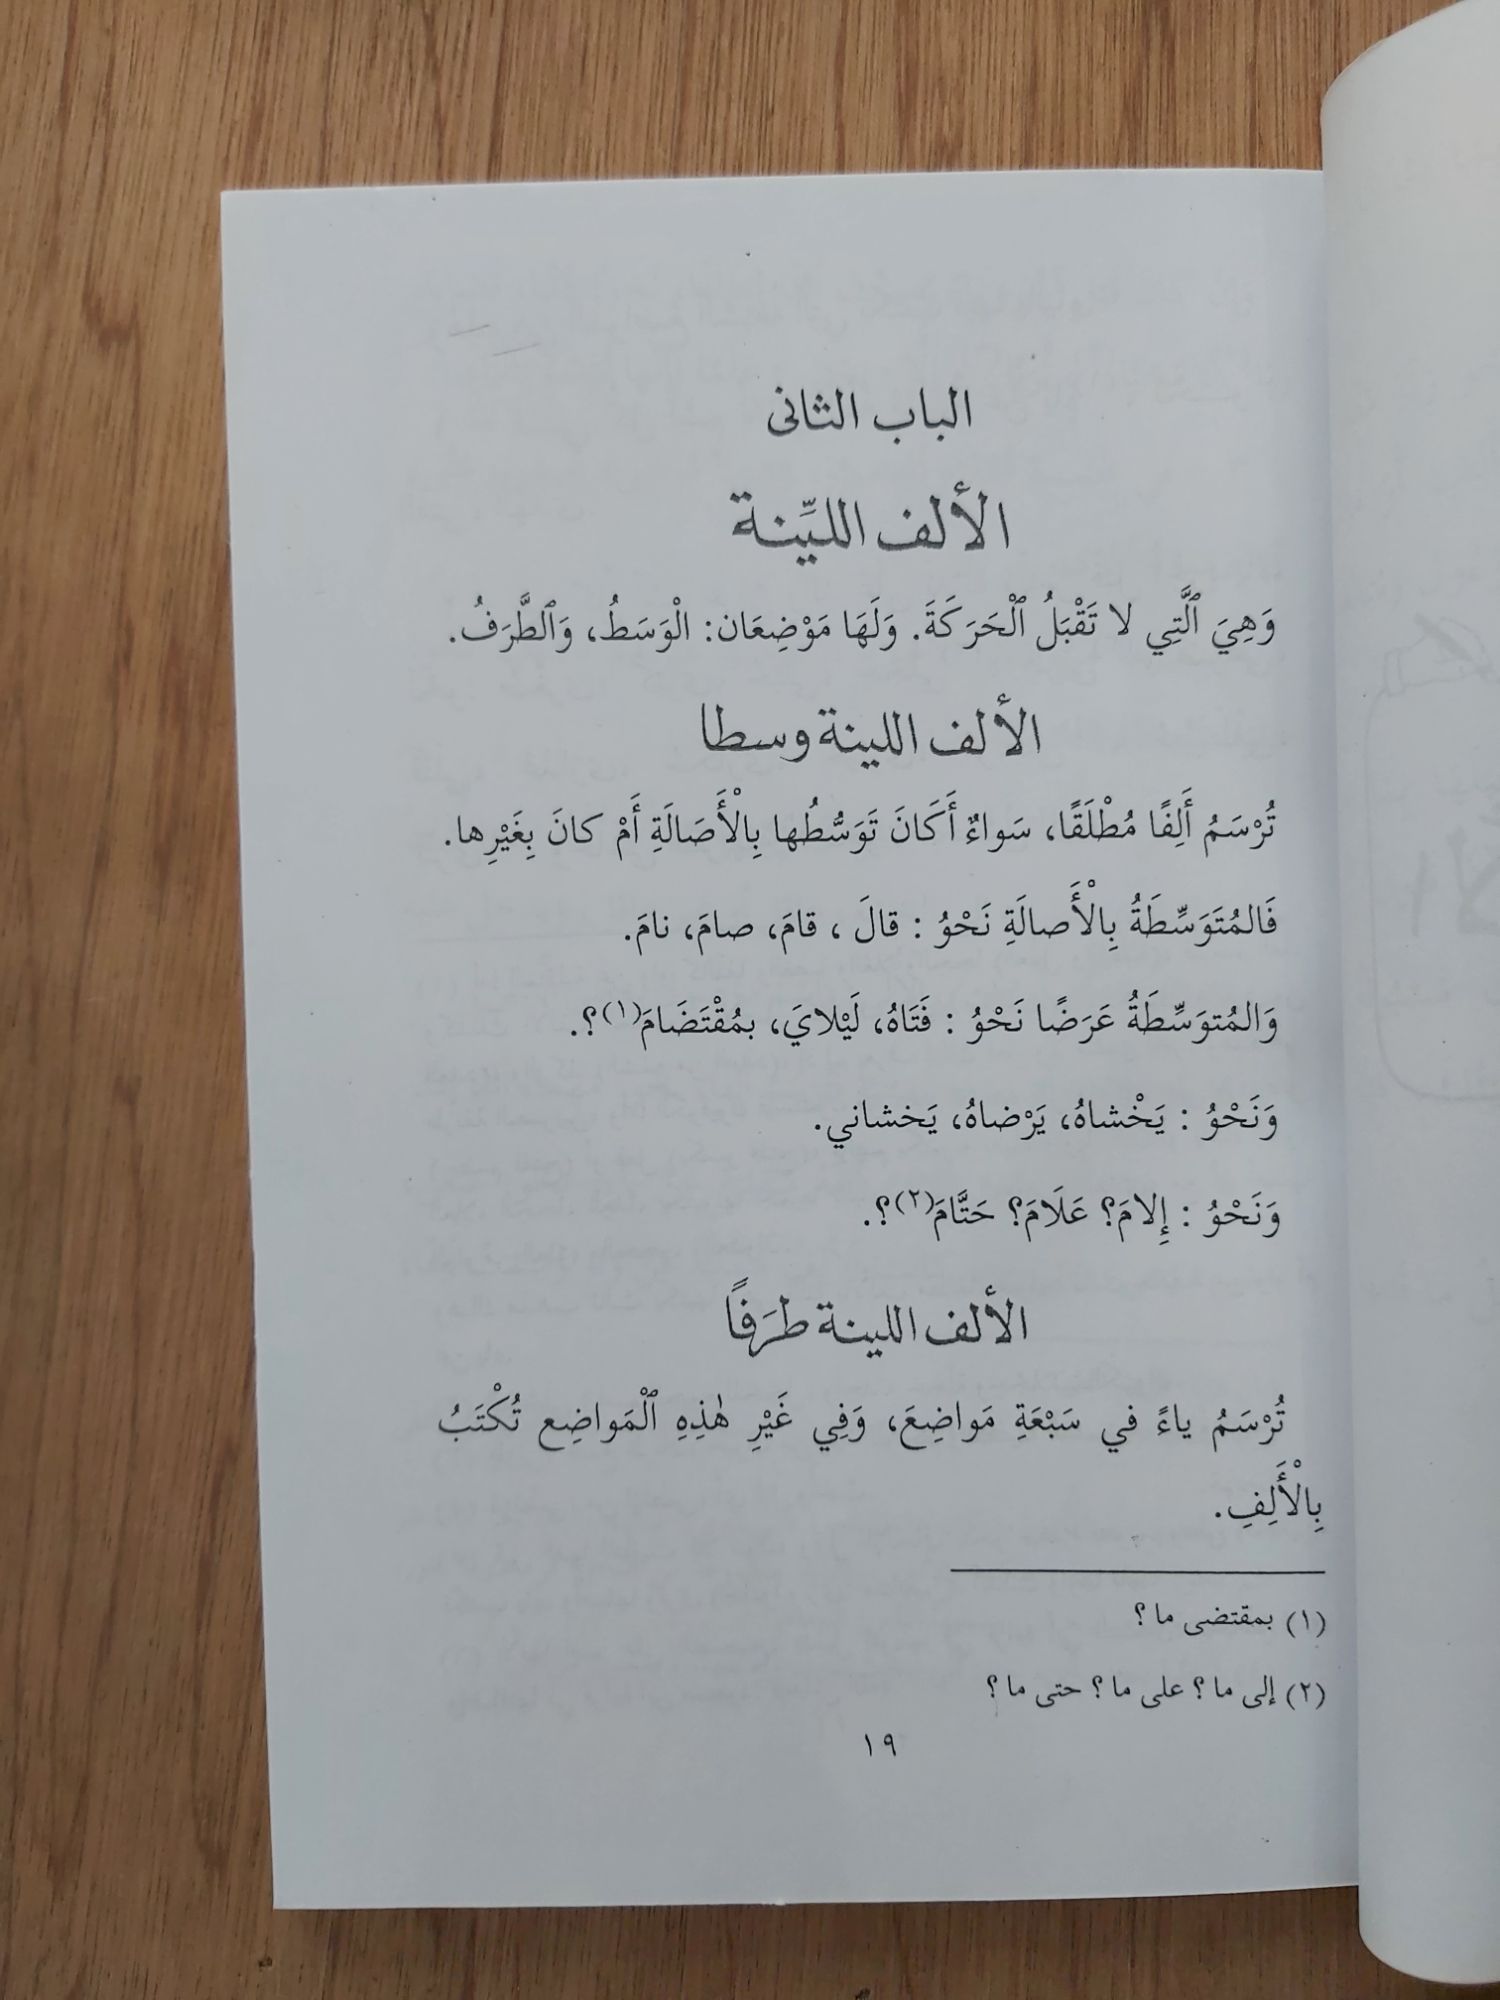 الباب الثانى
الألف الليِّنة
وَهِيَ ٱلَّتِي لا تَقْبَلُ ٱلْحَرَكَةَ. وَلَهَا مَوْضِعَان: الْوَسَطُ، وَٱلطَّرَفُ.
الألف اللينة وسطا
تُرْسَمُ أَلِفًا مُطْلَقًا، سَواءٌ أَكَانَ تَوَسُّطُها بِالْأَصَالَةِ أَمْ كانَ بِغَيْرِها.
فَالمُتَوَسِّطَةُ بِالْأَصالَةِ نَحْوُ : قالَ ، قامَ، صامَ، نامَ.
وَالمُتوَسِّطَةُ عَرَضًا نَحْوُ : فَتَاهُ، لَيْلايَ، بمُقْتَضَامَ(١)؟.
وَنَحْوُ : يَخْشاهُ، يَرْضاهُ، يَخشاني.
وَنَحْوُ : إِلامَ؟ عَلَامَ؟ حَتَّامَ(٢)؟.
الألف اللينة طرَفًا
تُرْسَمُ ياءً في سَبْعَةِ مَواضِعَ، وَفِي غَيْرِ هٰذِهِ ٱلْمَواضِع تُكْتَبُ
بِالْأَلِفِ.
(١) بمقتضى ما ؟
(٢) إلى ما ؟ على ما ؟ حتى ما ؟
١٩